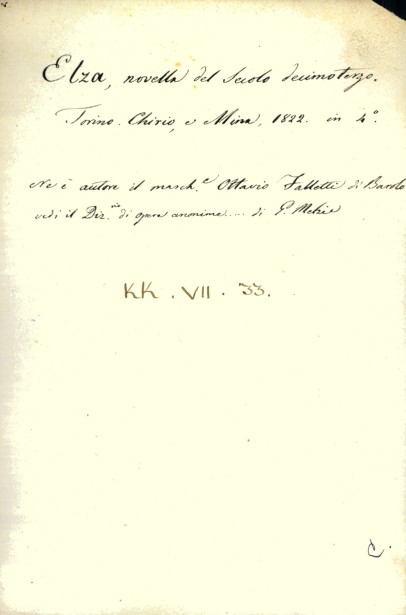 Elza, novella del Secolo decimoterzo.
Torino. Chirio, e Mina, 1822. in 4°.
Ne è autore il march.e Ottavio Falletti di Barolo
vedi il Diz.rio di opere anonime.... di G. Melzi
KK . VII . 33.
C.